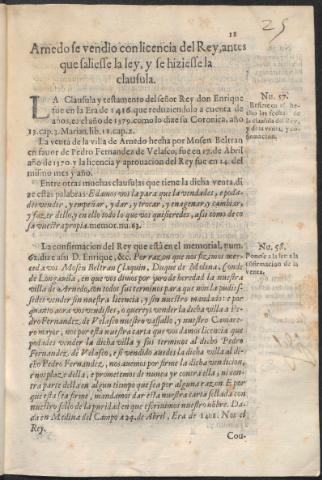 18
25
Arnedo se vendio con licencia del Rey, antes
que saliesse la ley, y se hiziesse la
clausula.
LA Clausula y testamento del señor Rey don Enrique
fue en la Era de 1416. que reduziendolo a cuenta de
años, es el año de 1379. como lo dize su Coronica, año
13. cap. 3. Marian. lib. 18. cap. 2.
Nu. 57.
Refierense el he-
cho las fechas de
la clausula del Rey,
y de la venta, y con-
firmacion.
La venta de la villa de Arnedo hecha por Mosen Beltran
en fauor de Pedro Fernandez de Velasco, fue en 17. de Abril
año de 1370 y la licencia y aprouacion del Rey fue en 24. del
mismo mes y año.
Entre otras muchas clausulas que tiene la dicha venta, di
ze estas palabras: E damos vos la para que la vendades, y poda-
des vender, y empeñar, y dar, y trocar, y enagenar, y cambiar,
y fazer dello, y en ello todo lo que vos quisieredes, assi como de co
sa vuestra propia. memor. nu. 63.
La confirmacion del Rey que està en el memorial, num.
62. dize assi D. Enrique, &c. Por razon que nos fizimos mer-
ced a vos Mosen Beltran Claquin, Duque de Molina, Conde
de Longauila, en que vos dimos por juro de heredad la nuestra
villa de Arnedo, con todos sus terminos para que non la pudies-
sedes vender sin nuestra licencia, y sin nuestro mandado: e por
quanto aora vos vendistes, o quereys vender la dicha villa a Pe-
dro Fernandez de Velasco nuestro vassallo, y nuestro Camare-
ro mayor, nos por esta nuestra carta que vos damos licencia que
podades vender la dicha villa y sus terminos al dicho Pedro
Fernandez de Velasco, e si vendido auedes la dicha villa al di-
cho Pedro Fernandez, nos auemos por firme la dicha vendicion,
e nos plaze della, e prometemos de nunca yr contra ella, ni con-
tra parte della en algun tiempo que sea por alguna razon. E por
que esta sea firme, mandamos dar esta nuestra carta sellada con
nuestro sello de la puridad en que escriuimos nuestro nõbre. Da-
da en Medina del Campo a 24. de Abril, Era de 1408. Nos el
Rey.
Nu. 58.
Ponese a la letra la
confirmacion de la
venta.
Cou-